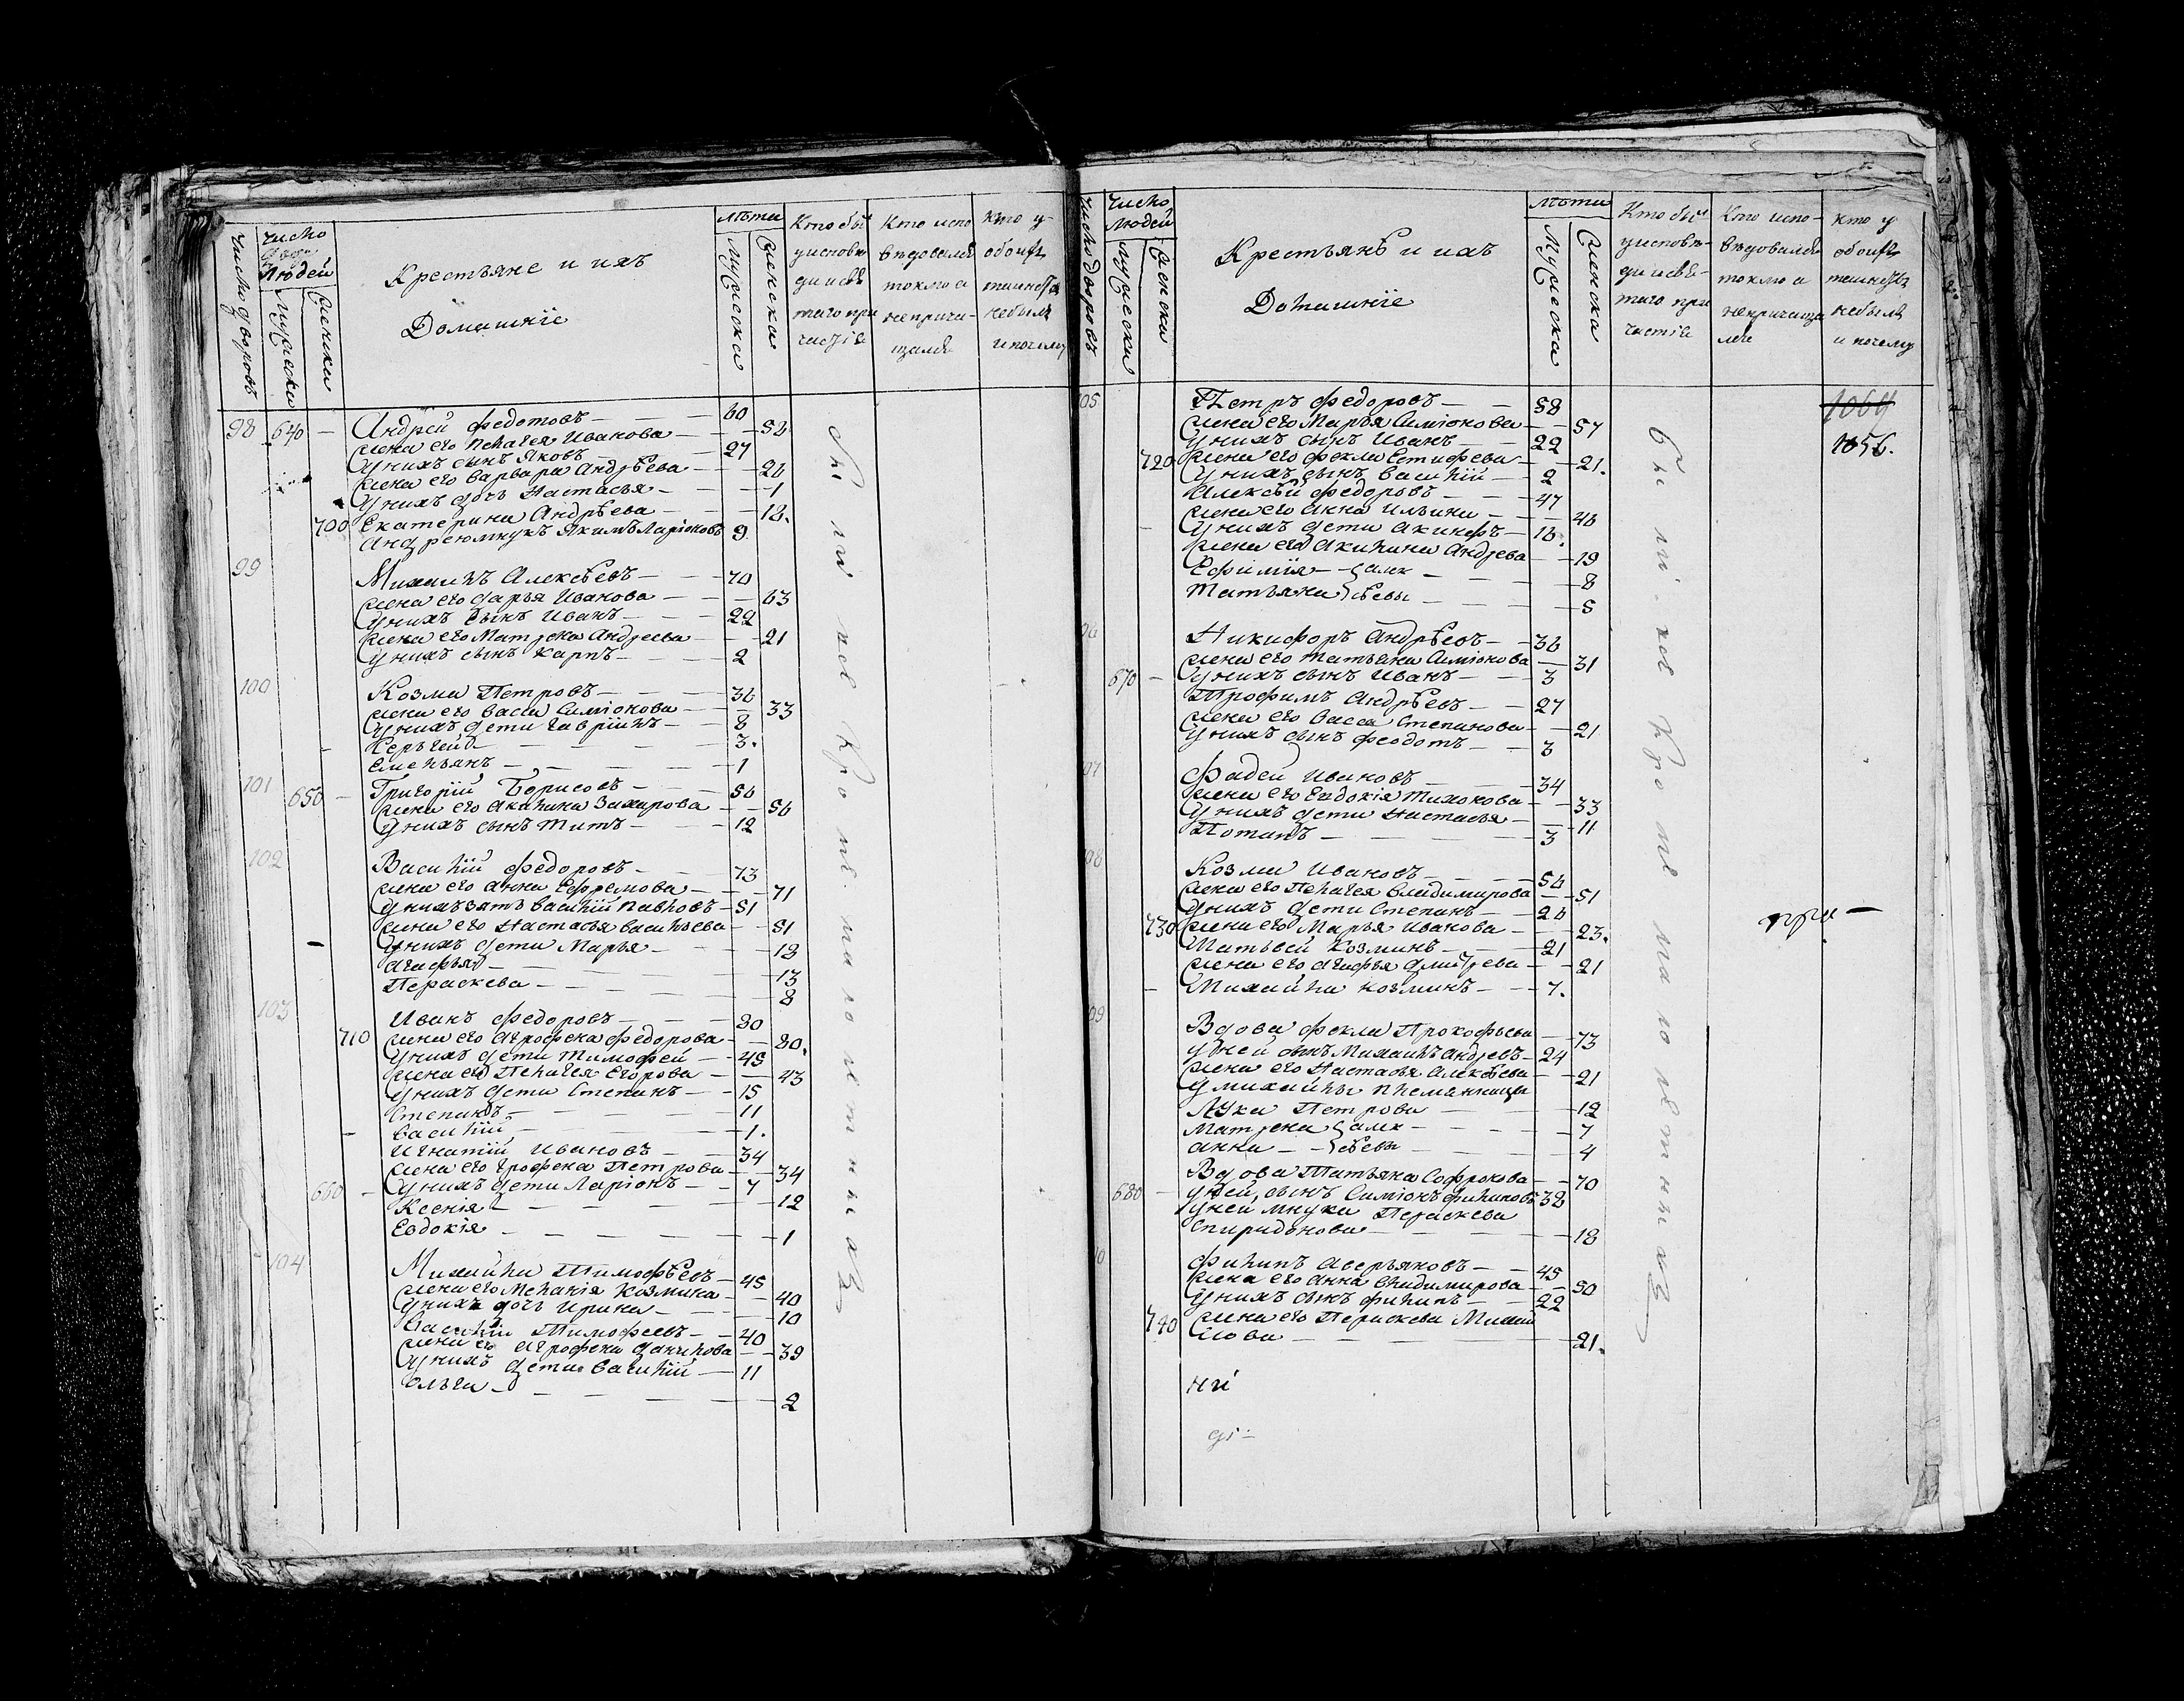 Число дворовъ
Число
Людей
Мужеска
Женска
Крестьяне и ихъ
Домашніе
Лѣта
Мужеска
Женска
Кто былъ
у исповѣ
ди и свя
таго при
частія
Кто испо
вѣдовался
токмо а
не прича-
щался
кто у
обоихъ
таинствъ
небылъ
и почему
98 640 — Андрей Федотовъ — 60
жена его Пелагея Иванова — 58
у нихъ сынъ Яковъ — 27
жена его Варвара Андрѣева — 26
у нихъ дочь Настасья — 1
700 Екатерина Андрѣева — 18.
Андрею мнукъ Якимъ Ларіоновъ 9
99
Михаилъ Алексѣевъ — 70
жена его Дарья Иванова — 63
у нихъ сынъ Иванъ — 22
жена его Матрена Андреева — 21
у нихъ сынъ Карпъ — 2
100
Козма Петровъ — 36
жена его Васса Симіонова — 33
у нихъ дети Гавріилъ — 8
— 3.
Емельянъ — 1
101 650 — Григорій Борисовъ — 56
жена его Акилина Захарова — 56
у нихъ сынъ Титъ — 12
102
Василій Федоровъ — 73
жена его Анна Ефремова — 71
у нихъ зять Василій Павловъ — 51
жена его Настасья Васильева — 51
у нихъ дети Марья — 18
Агафья — 13
Параскева — 8
103
Иванъ Федоровъ — 80
710 жена его Агрофена Федорова — 80.
у нихъ дети Тимофей — 45
жена его Пелагея Егорова — 43
у нихъ дети Степанъ — 15
Степанъ — 11
Василій — 1.
Игнатій Ивановъ — 34
жена его Грофена Петрова — 34
660 — у нихъ дети Ларіонъ — 7
Ксенія — 12
Евдокія — 1
104
Михайла Тимофѣевъ — 45
жена его Меланія Козмина — 40
у нихъ дочь Ирина — 10
Василій Тимофеевъ — 40
жена его Агрофена Данилова — 39
у нихъ дети Василій — 11
Ольга — 2
Число дворовъ
Число
Людей
Мужеска
Женска
Крестьянѣ и ихъ
Домашніе
Лѣта
Мужеска
Женска
Кто былъ
у исповѣ-
ди и свя-
таго при
частія
Кто испо-
вѣдовался
токмо а
не прича
лся
кто у
обоихъ
таинствъ
небылъ
и почему
1064
1056.
05
Петръ Федоровъ — 58
жена его Марья Симіонова — 57
у нихъ сынъ Иванъ — 22
720 жена его Фекла Естифева — 21.
у нихъ сынъ Василій — 2
Алексѣй Федоровъ — 47
жена его Анна Ильина — 46
у нихъ дети Акинфъ — 18.
жена его Акилина Андреева — 19
Ефимія — Алек — 8
Татьяна сѣевы — 5
06
Никифоръ Андрѣевъ — 36
жена его Татьяна Симіонова — 31
670 — у нихъ сынъ Иванъ — 3
Трофимъ Андрѣевъ — 27
жена его Васса Степанова — 21
у нихъ сынъ Феодотъ — 3
07
Фадей Ивановъ — 34
жена его Евдокія Тихонова — 33
у нихъ дети Настасья — 11
Потапъ — 3
08
Козма Ивановъ — 56
жена его Пелагея Владимирова — 51
у нихъ дети Степанъ — 26
730 жена его Марья Иванова — 23.
Матьвей Козминъ — 21
жена его Агафья Дмитрева — 21
Михайла Козминъ — 7.
09
Вдова Фекла Прокофьева — 73
у ней сынъ Михаилъ Андреевъ — 24
жена его Настасья Алексѣева — 21
у Михайлы племянница
Петрова — 12
Матрена Алек — 7
Анна — сѣевы — 4
Вдова Татьяна Софронова — 70
680 — у ней сынъ Симіонъ Филиповъ 38
у ней мнука Параскева
Спиридонова — 18
10
Филипъ Аверьяновъ — 45
жена его Анна Владимирова — 50
у нихъ сынъ Филипъ — 22
740 жена его Параскева Михай
лова — 21.